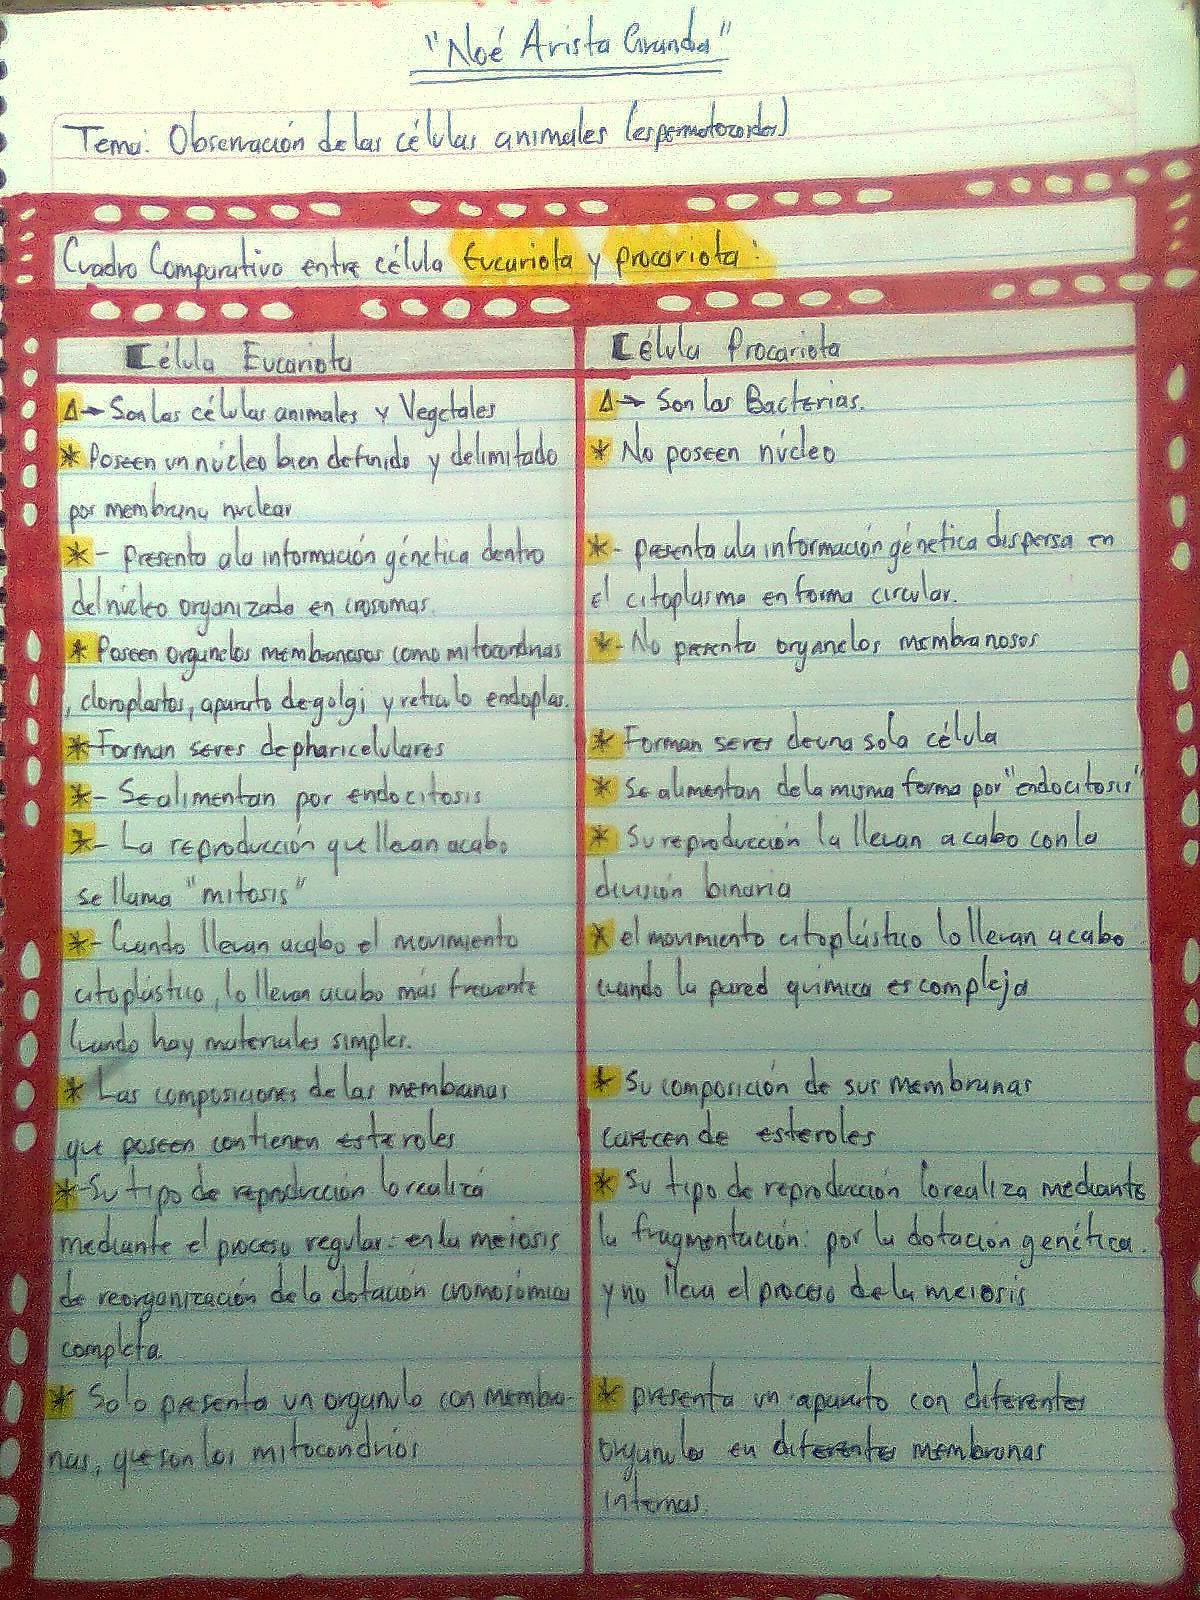 "Noé Arista Granda"
Tema: Observación de las células animales (espermatozoides)
Cuadro Comparativo entre célula Eucariota y procariota:
Célula Eucariota
Δ→ Son las células animales y Vegetales
* Poseen un núcleo bien definido y delimitado
por membrana nuclear
*- presenta ala información génetica dentro
del núcleo organizada en crosomas.
* Poseen organelos membranosos como mitocondrias
, cloroplastos, aparato de golgi y reticulo endoplas.
*-Forman seres de pharicelulares
*- Se alimentan por endocitosis
*- La reproducción que llevan acabo
se llama "mitosis"
*- Cuando llevan acabo el movimiento
citoplástico, lo llevan acabo más frecuente
Cuando hay materiales simples.
* Las composiciones de las membranas
que poseen contienen esteroles
*-Su tipo de reproducción lo realiza
mediante el proceso regular: en la meiosis
de reorganización de la dotación cromosómica
completa.
* Solo presenta un organulo con membra-
nas, que son las mitocondrios
Célula Procariota
Δ→ Son las Bacterias.
* No poseen núcleo
*- presenta ala información génetica dispersa en
el citoplasma en forma circular.
*- No presenta organelos membranosos
* Forman seres de una sola célula
* Se alimentan de la misma forma por "endocitosis"
* Su reproducción la llevan acabo con la
división binaria
* el movimiento citoplástico lo llevan acabo
cuando la pared química es compleja
* Su composición de sus membranas
carecen de esteroles
* Su tipo de reproducción lo realiza mediante
la fragmentación: por la dotación genética.
y no lleva el proceso de la meiosis
* presenta un aparato con diferentes
organulos en diferentes membranas
internas.